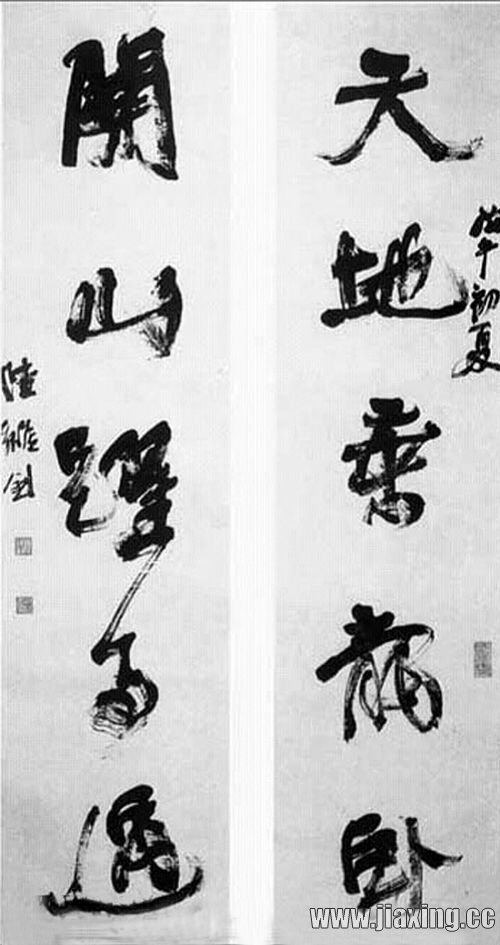 天地乘龍臥
午初夏
關山躍馬過
陸維釗
www.jiaxing.cc